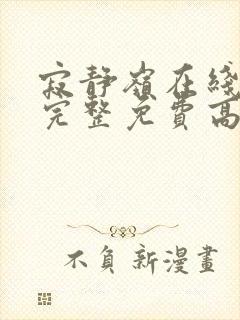 寂静嶺在綫
完整免費高
不負新漫畫